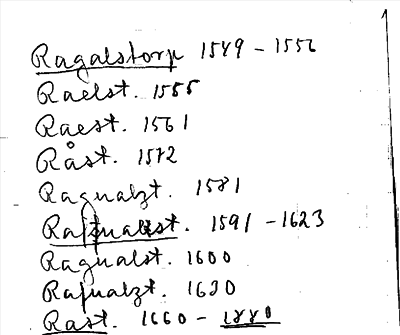 Ragalstorp 1549 - 1556
Raelst. 1555
Raest. 1561
Råst. 1572
Ragualzt. 1581
1591 - 1623
Ragualst. 1600
Rafualzt. 1620
Rast. 1660 - 1880